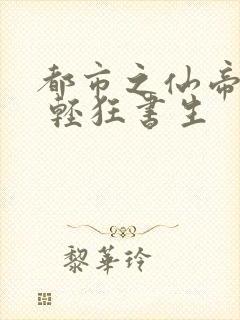 都市之仙帝
輕狂書生
黎華玲